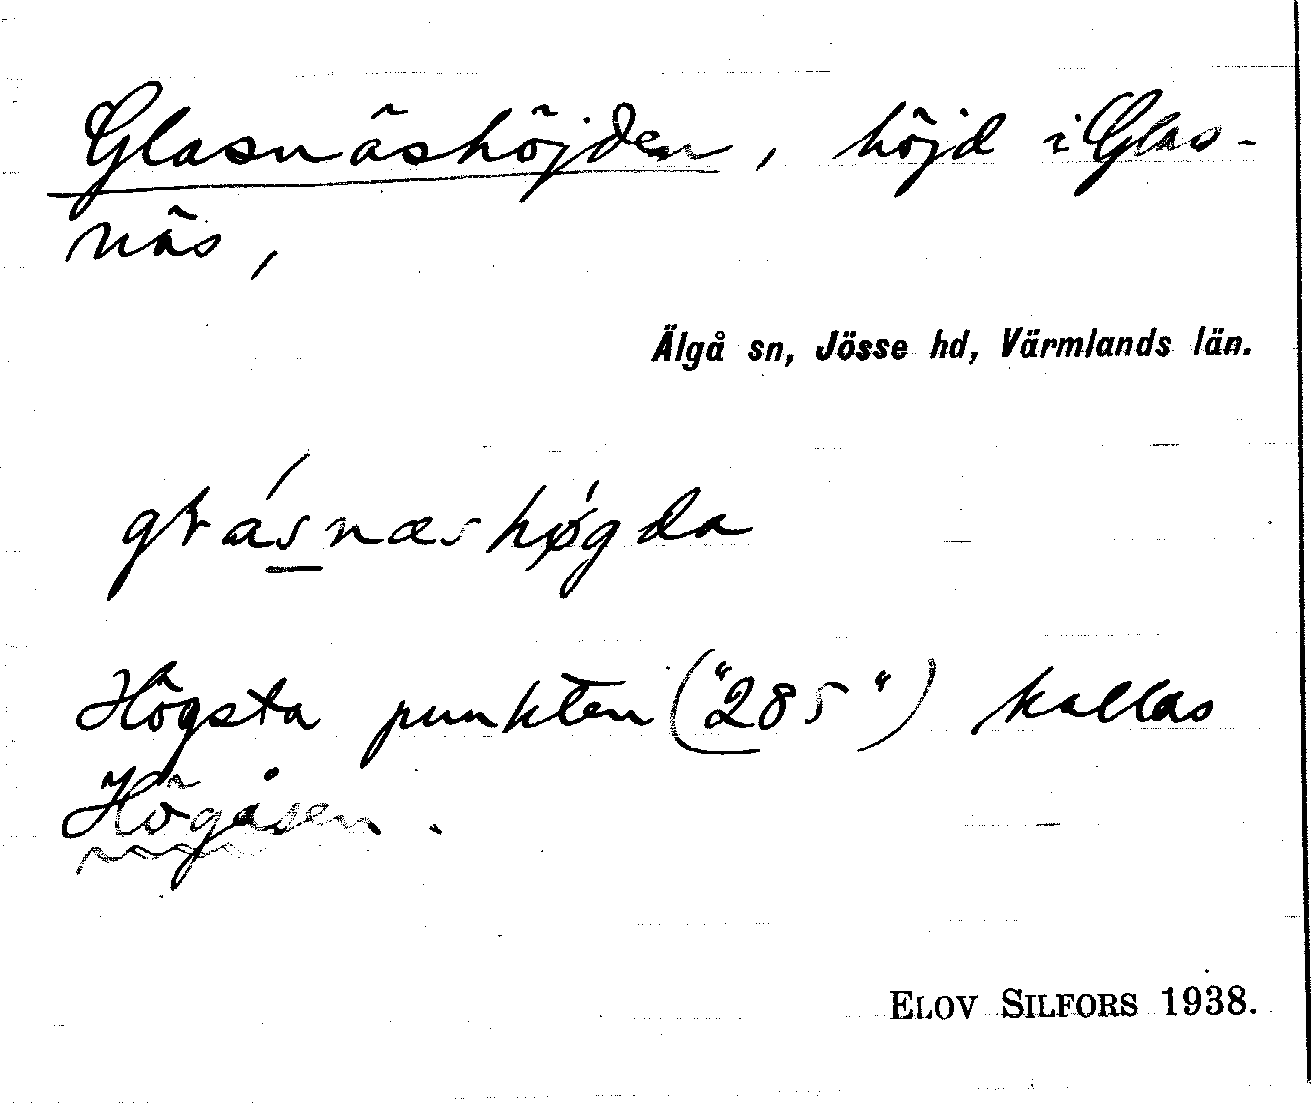 Glasnäshöjden, höjd i Glas-
näs,
Älgå sn, Jösse hd, Värmlands län.
Högsta punkten ("285") kallas
Högåsen.
ELOV SILFORS 1938.